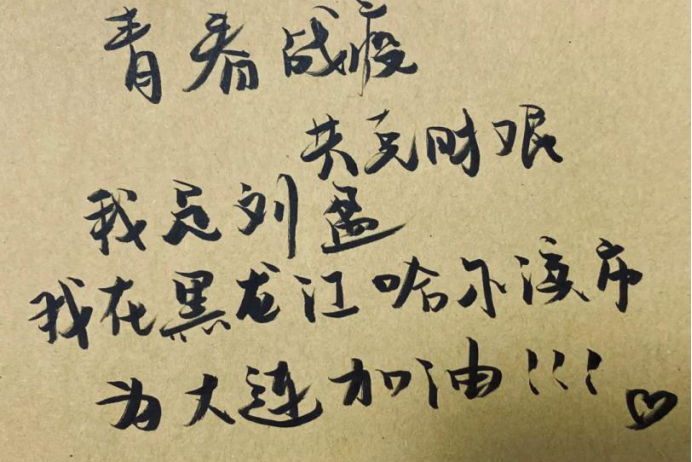 青春战疫
共克时艰
我是刘盈
我在黑龙江哈尔滨市
为大连加油!!!